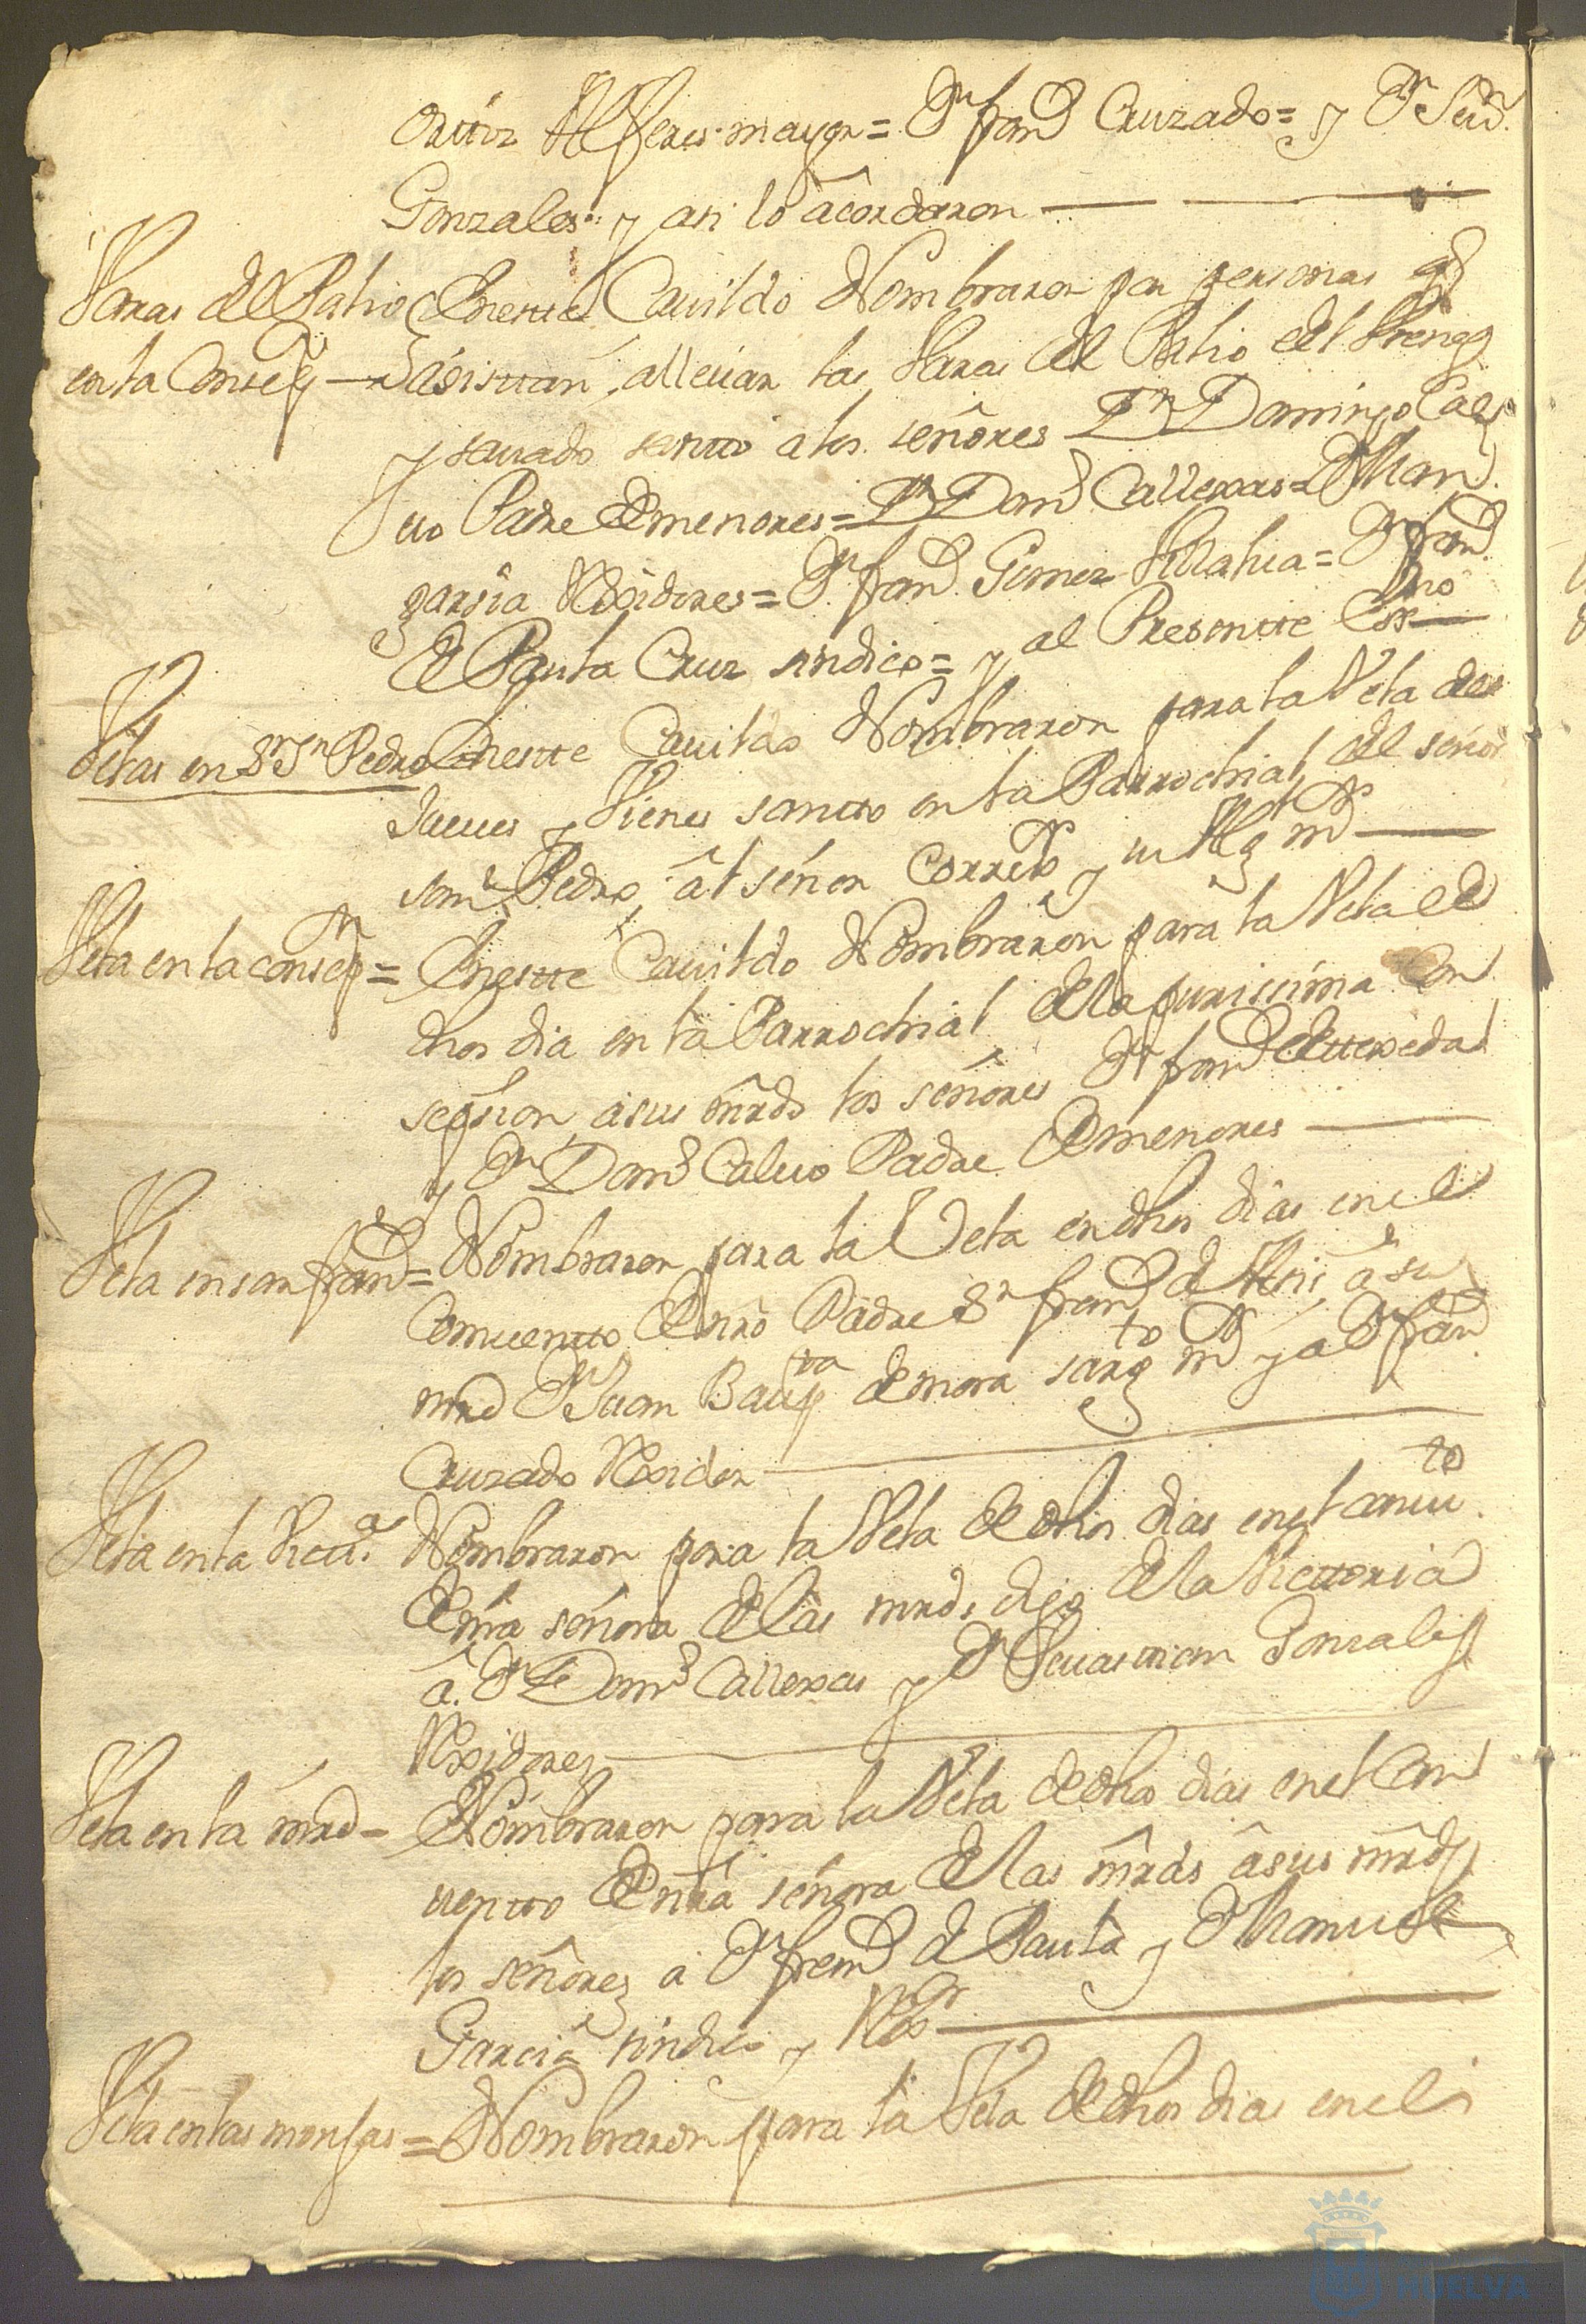 Orttiz Alferes mayor = Dn. franco Cruzado = y Dn. Seun.
Gonzales: y asi lo acordaron
Varas del Palio
en la Consepn
Eneste Cauildo Nombraron por personas qe
asistan, alleuar las Varas del Palio el Vienes
y sauado santto a los señores Dn Domingo Cal
uo Padre de menores = Dn Domo Callexas = Dn Man
garsia Rexidores = Dn. franco Gomez = Dn franco
de Pauta Cruz sindico = y al Presentte Essno
Velas en Sr Sn Pedro
Enestte Cauildo Nombraron para la Vela del
Jueues y Vienes santto en la Parrochial del señor
san Pedro, al señor Corredor y su Alg mr
Vela en la consepn =
Enestte Cauildo Nombraron para la Vela de
dhos dia en la Parrochial de la purissima Con
sepsion, a sus mrds los señores Dn franco de
y Dn Domo Caluo Padre de menores
Vela en san franco =
Nombraron para la Vela en dhos dias en el
Comuentto de nro Padre Sn franco de Asis, a su
mrd Dn Juan Bauptta de mora sargto mr y a Dn franco
Cruzado Rexidor
Vela en la Victta
Nombraron para la Vela de dhos dias en el conuto
de nra señora de las mrds digo de la Victtoria
a. Dn Domo Callexas y Dn Seuasttian Gonzales
Rexidores
Vela en la mrd =
Nombraron para la Vela de dhos dias en el Con
uentto de nra señora de las mrds a sus mrds
los señores a Dn franco de Pauta y Dn Manuel
Garcia sindico y Rexor
Vela en las monjas =
Nombraron para la Vela de dhos dias en el
HUELVA